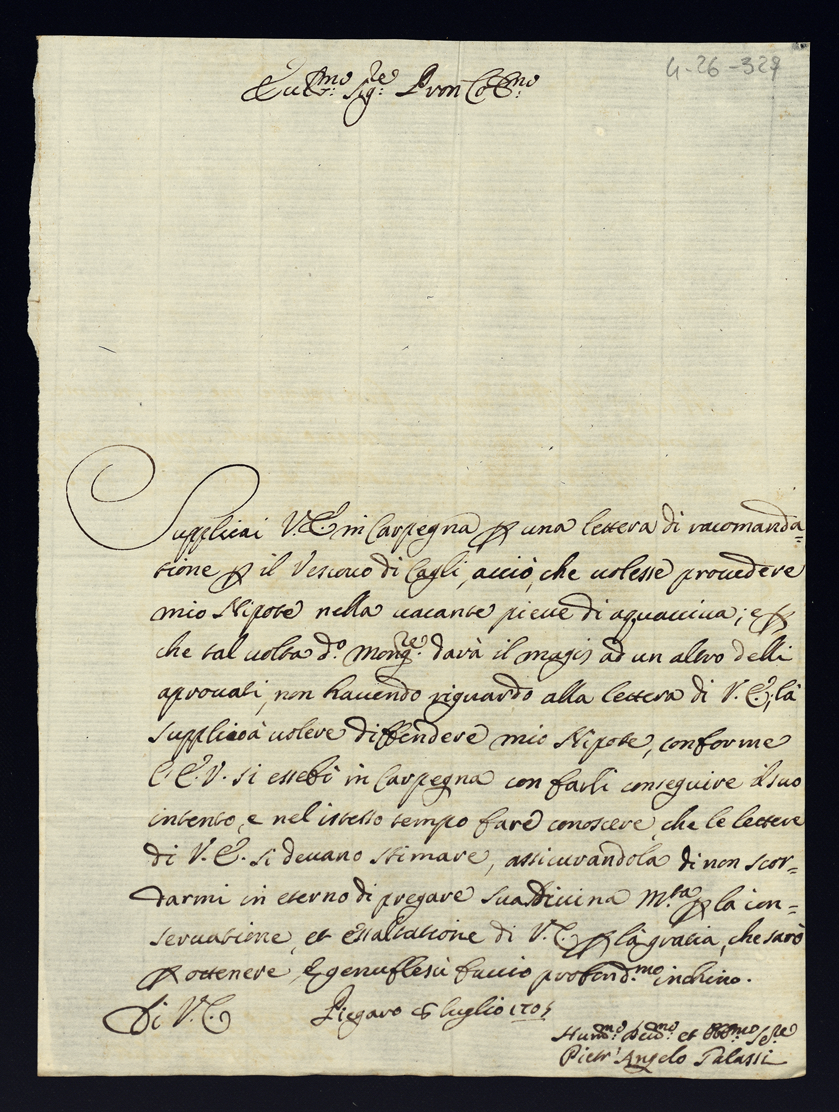 4-26-329
Sig.re P̃ron Co
Supplicai V. E. in Carpegna ꝑ una lettera di racomanda=
tione ꝑ il Vescouo di Cagli, acciò, che uolesse prouedere
mio Nipote nella uacante pieue di aquauiua; e ꝑ
che tal uolta d.o Mong.re darà il magis ad un altro delli
aprouati, non hauendo riguardo alla lettera di V. E., la
supplico à uolere diffendere mio Nipote, conforme
l'E. V. si essebì in Carpegna con farli conseguire il suo
intento, e nel istesso tempo fare conoscere, che le lettere
di V. E. si deuano stimare, assicurandola di non scor=
darmi in eterno di pregare sua Diuina M.tà ꝑ la con=
seruatione, et essaltatione di V. E. ꝑ la gratia, che sarò
ꝑ ottenere, e genuflesso faccio profond.mo inchino.
Di V. E. luglio
Hum.mo Deu.mo et Obb.mo Se.re
Pietr' Angelo Palassi